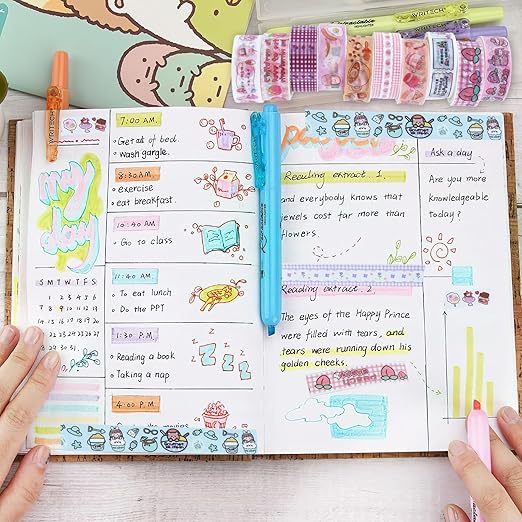 Retractable
WRITECH
HIGHLIGHTER
WRITECH
my
day
S M T W T F S
1 2 3 4 5 6
7 8 9 10 11 12 13
14 15 16 17 18 19 20
21 22 23 24 25 26 27
28 29 30 31
7:00 A.M.
Get of bed.
Wash gargle.
8:30 A.M
exercise
eat breakfast.
10:40 A.M
Go to class
11:40 A.M
To eat lunch
Do the PPT
1:30 P.M.
Reading a book
Taking a nap
Z Z Z
4:00 P.M.
Reading extract 1.
and everybody knows that
jewels cost far more than
flowers.
Reading extract. 2
The eyes of the Happy Prince
were filled with tears, and
tears were running down his
golden cheeks.
Ask a day
Are you more
knowledgeable
today?